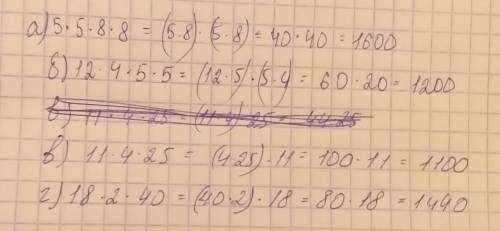 а) 5·5·8·8 = (5·8)·(5·8) = 40·40 = 1600
б) 12·4·5·5 = (12·5)·(5·4) = 60·20 = 1200
в) 11·4·25 = (11·4)·25 = 44·25
в) 11·4·25 = (4·25)·11 = 100·11 = 1100
г) 18·2·40 = (40·2)·18 = 80·18 = 1440